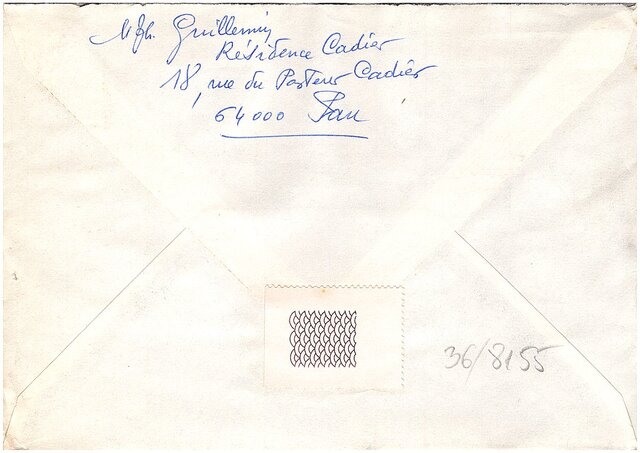 Guillemin
Résidence Cadier
18, rue du Pasteur Cadier
64000 Pau
36/8155